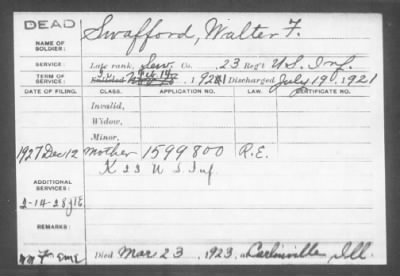 DEAD
NAME OF SOLDIER: Swafford, Walter F.
SERVICE: Late rank, Serv. Co. 23 Reg't U.S. Inf.
TERM OF SERVICE: Enlisted 192 1 Discharged July 19, 1921
DATE OF FILING. CLASS. APPLICATION NO. LAW. CERTIFICATE NO.
Invalid,
Widow,
Minor,
1927 Dec 12 Mother 1599800 R.E.
K 23 U S Inf
ADDITIONAL SERVICES:
2-14-28
REMARKS:
Died Mar 23, 1923, at Carlinville Ill.